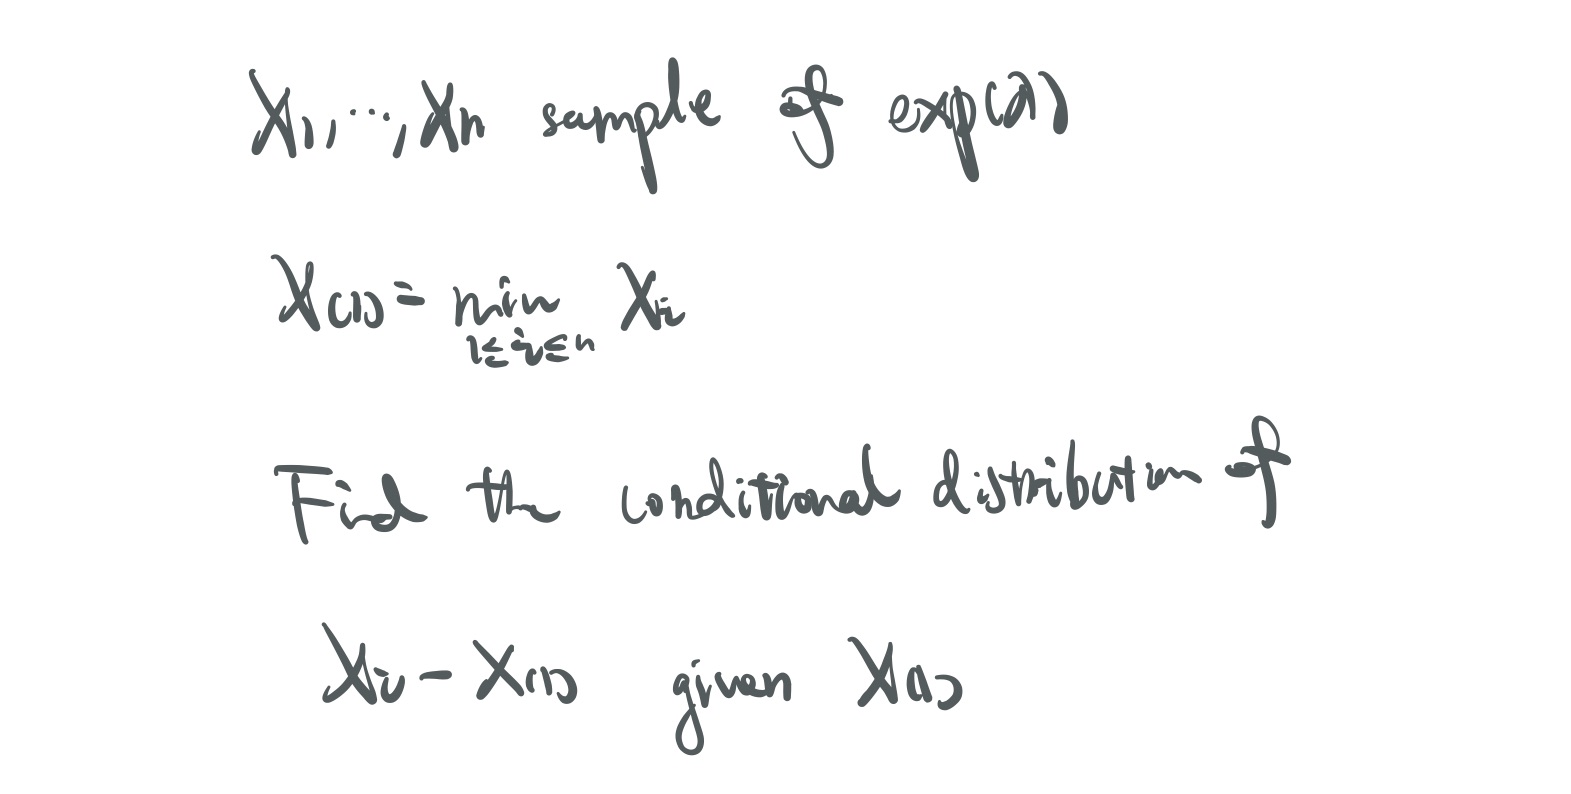 X₁, ⋯, Xₙ sample of exp(λ)
X₍₁₎ = min Xᵢ
1≤i≤n
Find the conditional distribution of
Xᵢ - X₍₁₎ given X₍₁₎